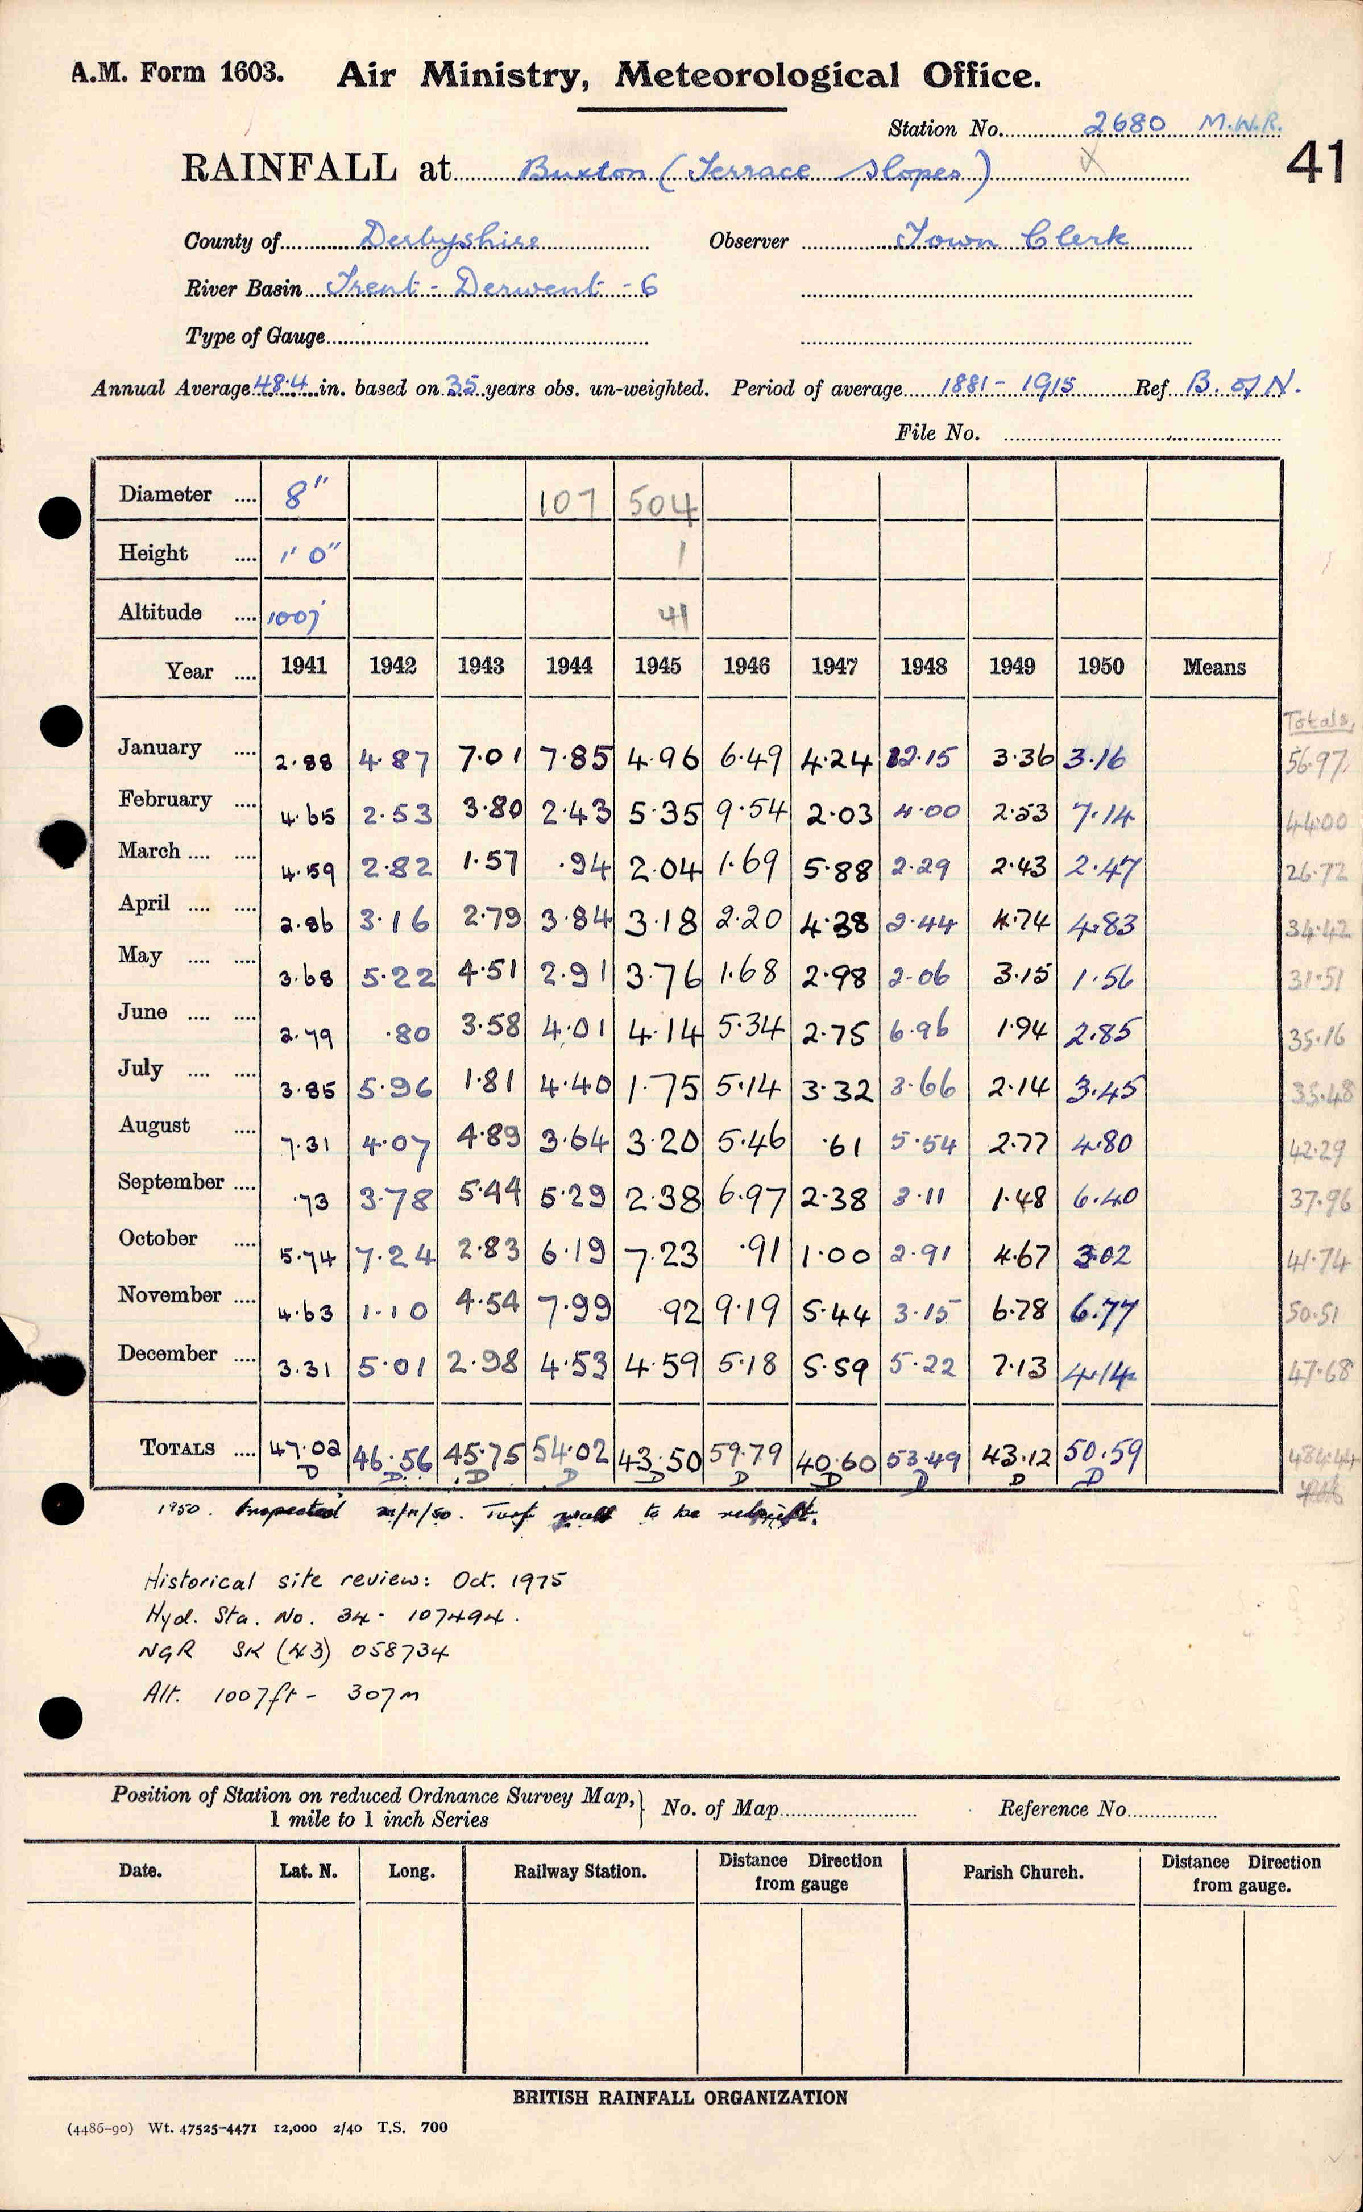 A.M. Form 1603. Air Ministry, Meteorological Office.
Station No. 2680 M.W.R.
RAINFALL at Buxton (Terrace Slopes)
41
County of Derbyshire Observer Town Clerk
River Basin Trent - Derwent - 6
Type of Gauge
Annual Average 48.4 in. based on 35 years obs. un-weighted. Period of average 1881 - 1915 Ref B. of N.
File No.
Diameter .... 8" 107 504
Height .... 1' 0" 1
Altitude .... 1007' 41
Year .... 1941 1942 1943 1944 1945 1946 1947 1948 1949 1950 Means
Totals,
January .... 2.88 4.87 7.01 7.85 4.96 6.49 4.24 12.15 3.36 3.16 56.97
February .... 4.65 2.53 3.80 2.43 5.35 9.54 2.03 4.00 2.53 7.14 44.00
March .... .... 4.59 2.82 1.57 .94 2.04 1.69 5.88 2.29 2.43 2.47 26.72
April .... .... 2.86 3.16 2.79 3.84 3.18 2.20 4.38 2.44 4.74 4.83 34.42
May .... .... 3.68 5.22 4.51 2.91 3.76 1.68 2.98 2.06 3.15 1.56 31.51
June .... .... 2.79 .80 3.58 4.01 4.14 5.34 2.75 6.96 1.94 2.85 35.16
July .... .... 3.85 5.96 1.81 4.40 1.75 5.14 3.32 3.66 2.14 3.45 35.48
August .... 7.31 4.07 4.89 3.64 3.20 5.46 .61 5.54 2.77 4.80 42.29
September .... .73 3.78 5.44 5.29 2.38 6.97 2.38 3.11 1.48 6.40 37.96
October .... 5.74 7.24 2.83 6.19 7.23 .91 1.00 2.91 4.67 3.02 41.74
November .... 4.63 1.10 4.54 7.99 .92 9.19 5.44 3.15 6.78 6.77 50.51
December .... 3.31 5.01 2.98 4.53 4.59 5.18 5.59 5.22 7.13 4.14 47.68
TOTALS .... 47.02 46.56 45.75 54.02 43.50 59.79 40.60 53.49 43.12 50.59 484.44
D D D D D D D D D D
1950. Inspected /50. Turf wall to be rebuilt.
Historical site review: Oct. 1975
Hyd. Sta. No. 34- 107494.
NGR SK (43) 058734
Alt. 1007ft - 307m
Position of Station on reduced Ordnance Survey Map, 1 mile to 1 inch Series } No. of Map Reference No.
Date. Lat. N. Long. Railway Station. Distance Direction from gauge Parish Church. Distance Direction from gauge.
BRITISH RAINFALL ORGANIZATION
(4486-90) Wt. 47525-4471 12,000 2/40 T.S. 700